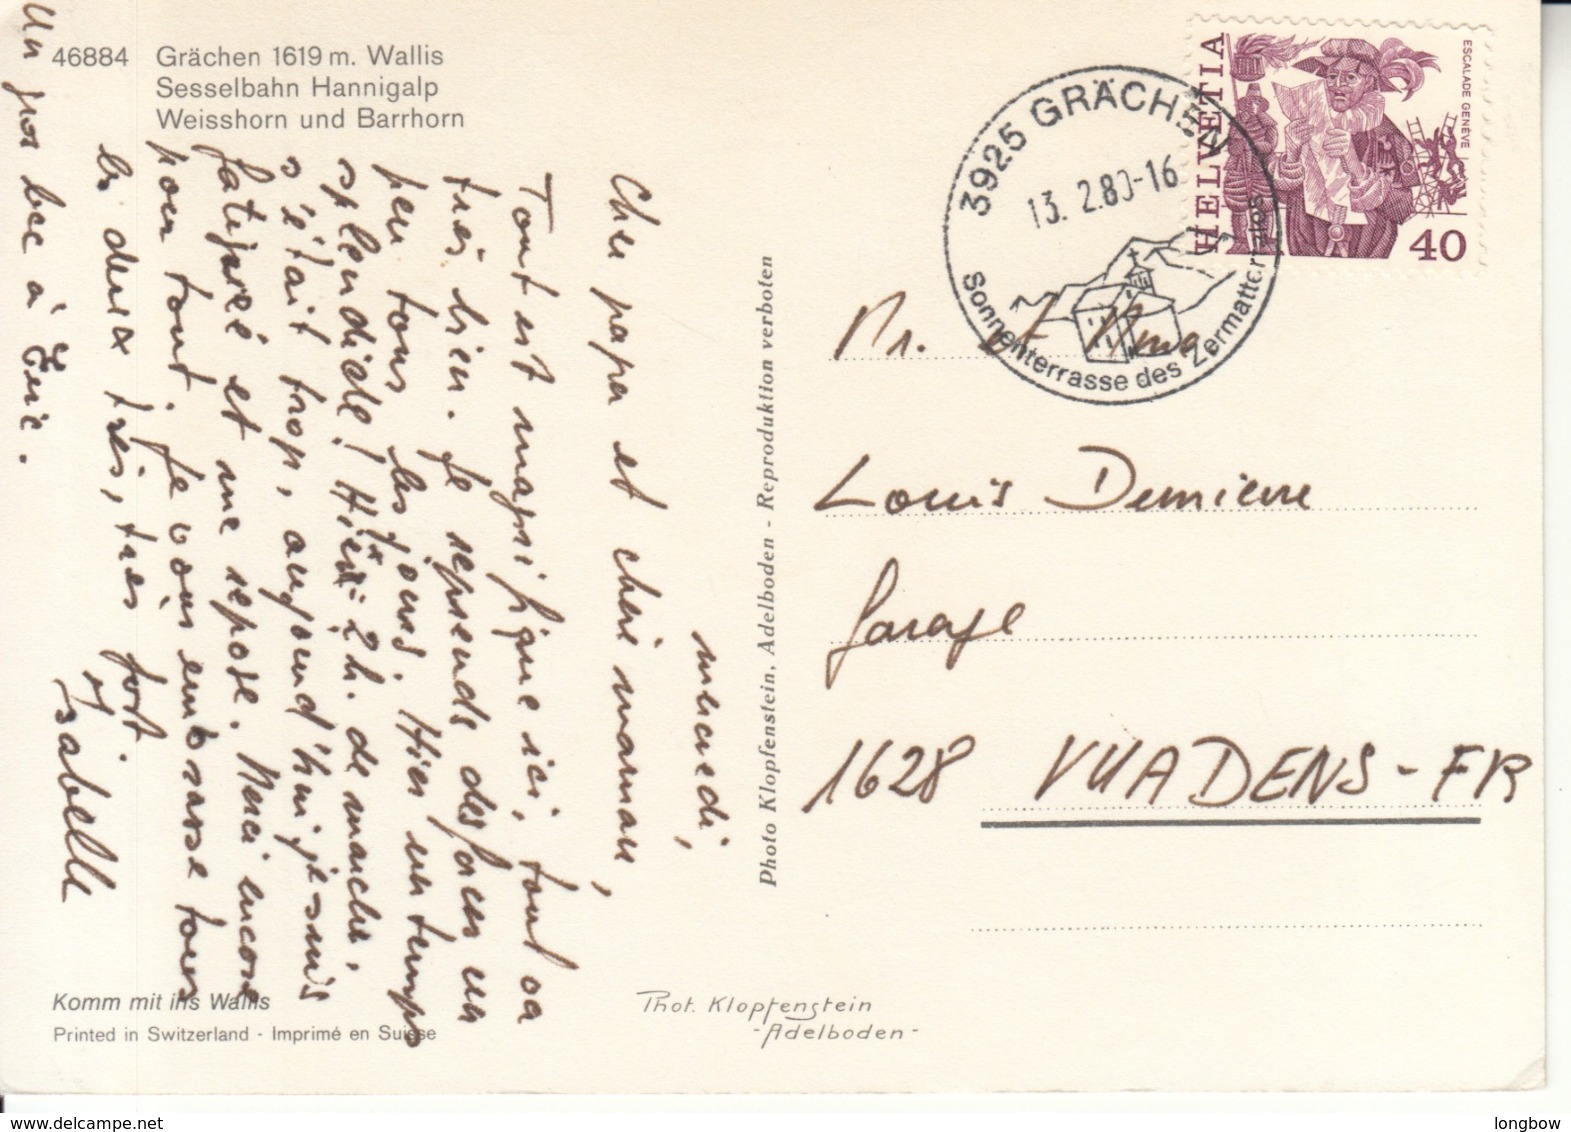 46884 Grächen 1619 m. Wallis
Sesselbahn Hannigalp
Weisshorn und Barrhorn
mercredi,
Cher papa et chère maman,
Tout est magnifique ici, tout va
très bien. Je reprends des forces un
peu tous les jours. Hier un temps
splendide! Hier 2 h. de marche,
s'était trop, aujourd'hui je suis
fatiguée et me repose. Merci encore
pour tout. Je vous embrasse tous
les deux très, très fort.
Isabelle
Un gros bec à Eric.
Komm mit ins Wallis
Printed in Switzerland - Imprimé en Suisse
Photo Klopfenstein, Adelboden - Reproduktion verboten
Phot. Klopfenstein
- Adelboden -
3925 GRÄCHEN
13. 2.80-16
Sonnenterrasse des Zermattertales
HELVETIA
ESCALADE GENÈVE
40
Mr. et Mme
Louis Demierre
Garage
1628 VUADENS - FR
www.delcampe.net
longbow